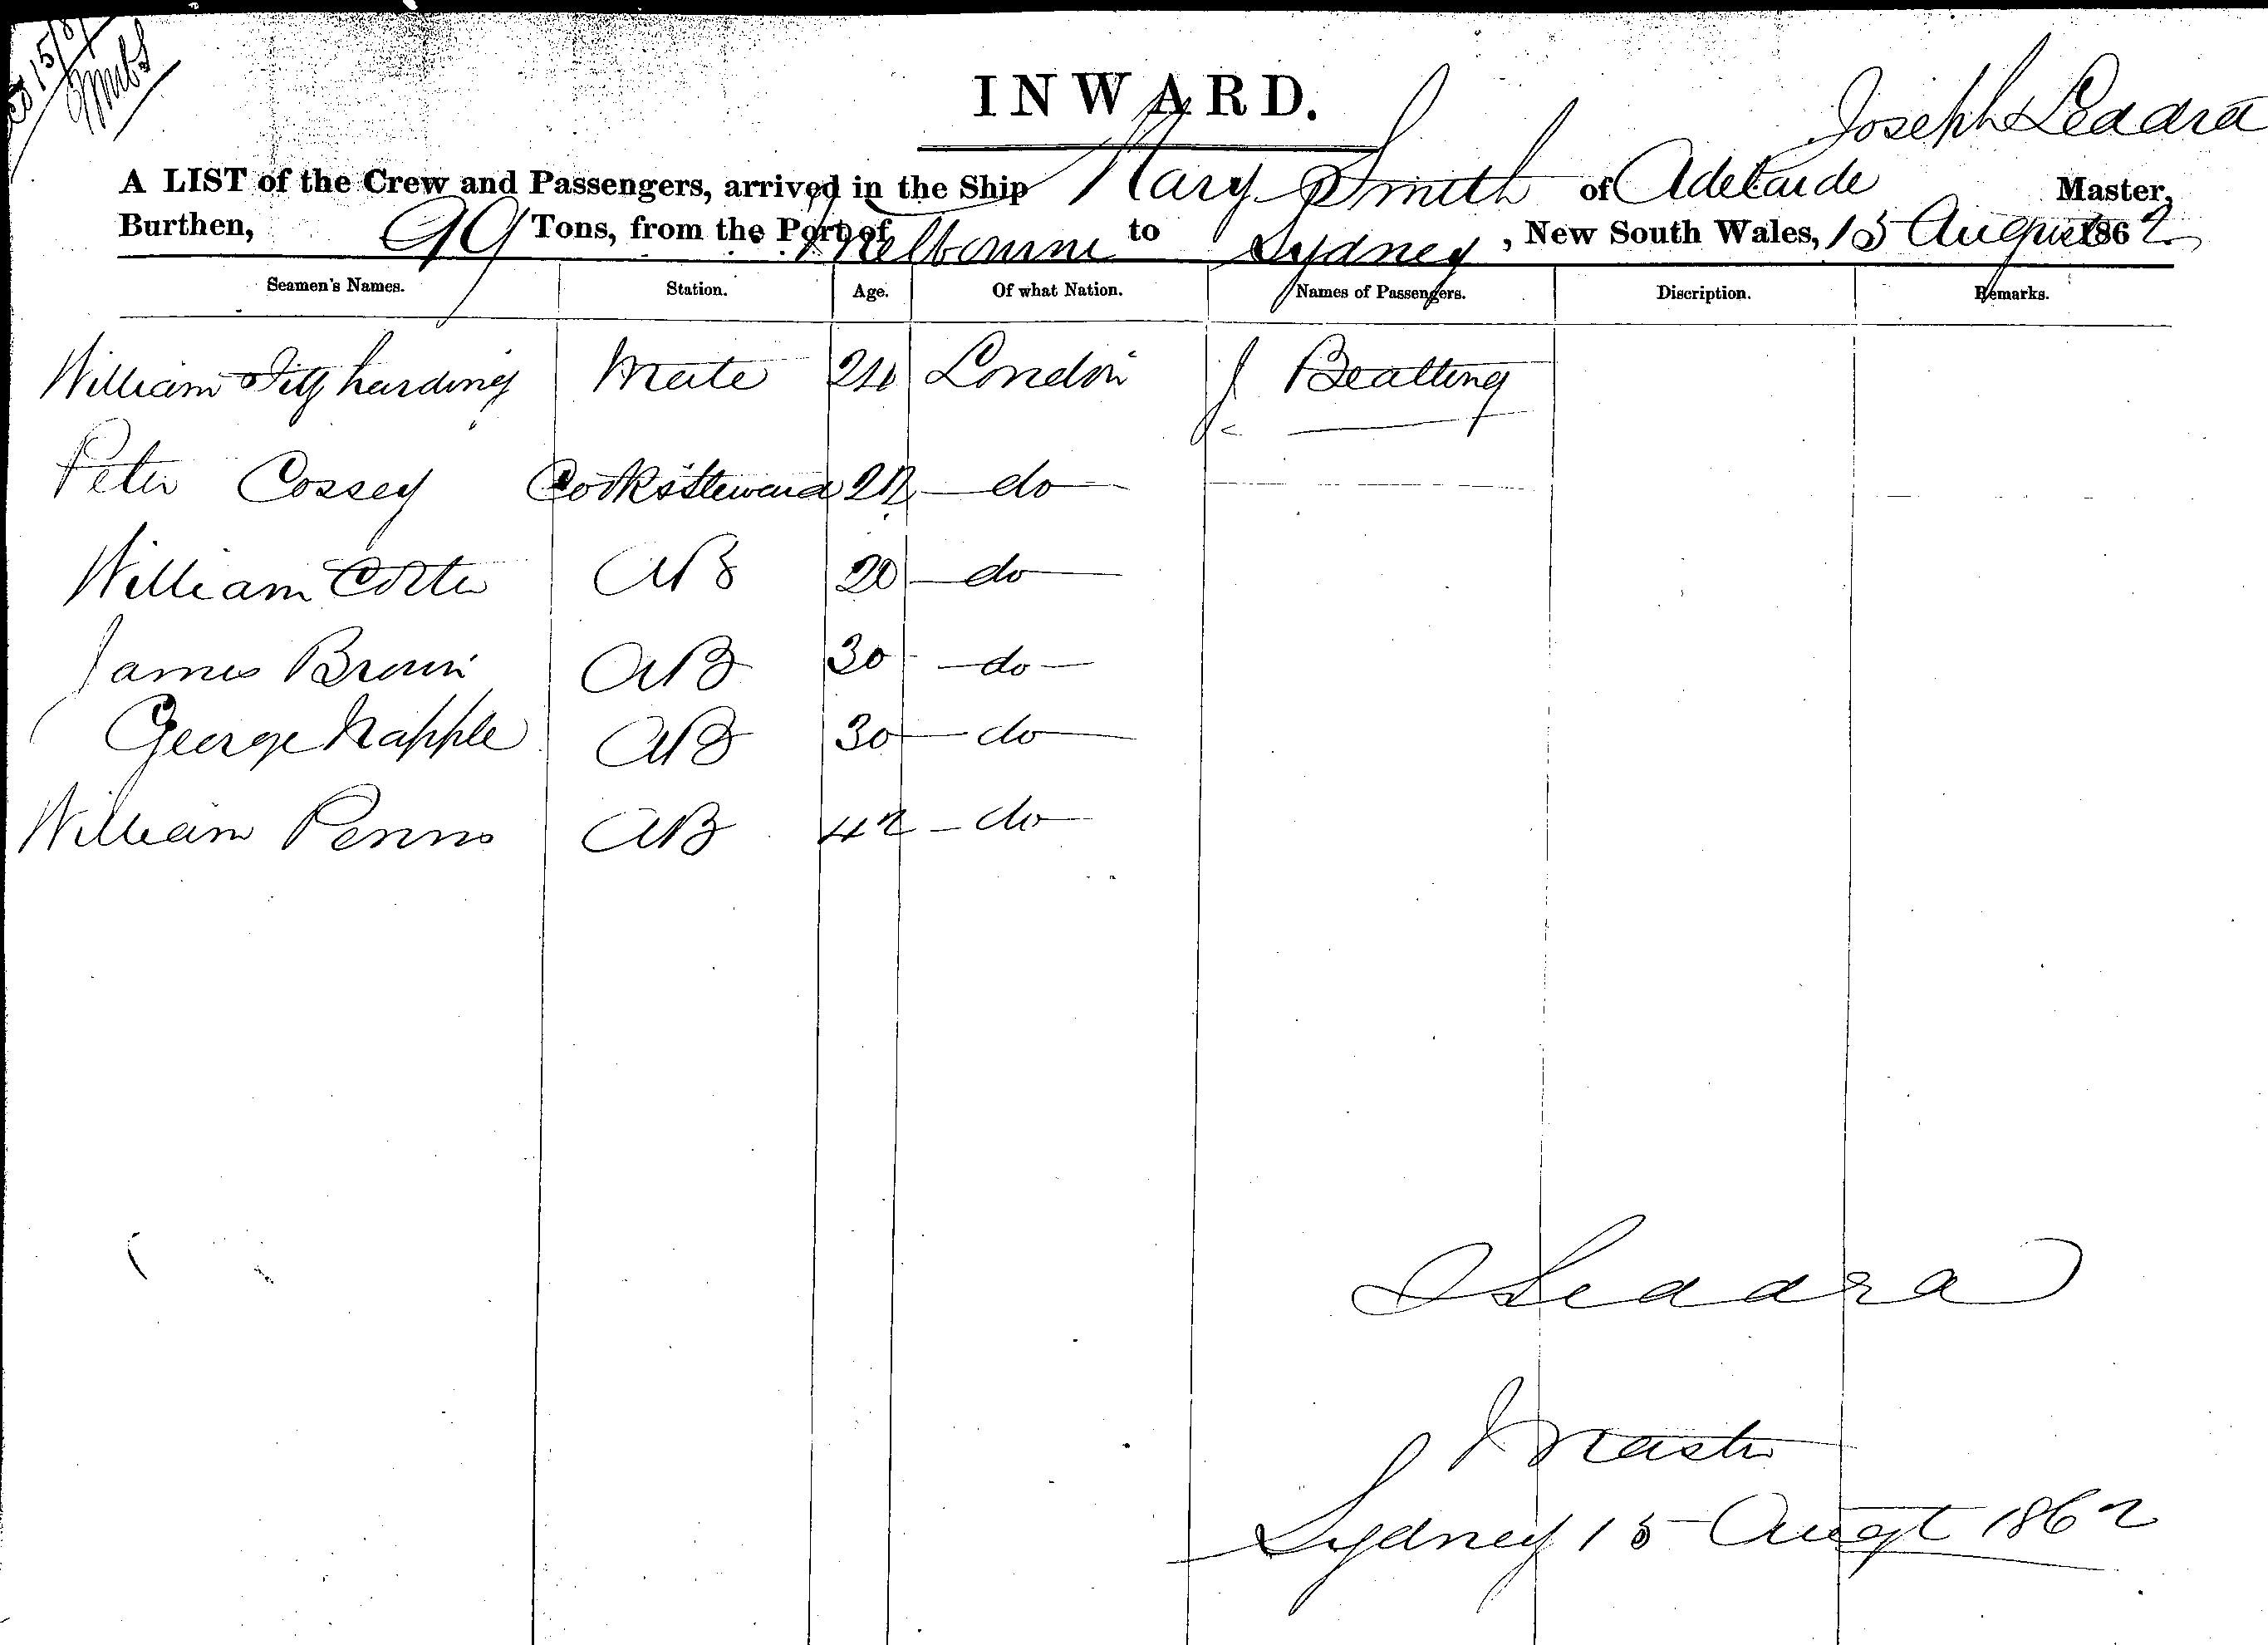 INWARD.
Joseph Leddra
A LIST of the Crew and Passengers, arrived in the Ship Mary Smith of Adelaide Master,
Burthen, 99 Tons, from the Port of Melbourne to Sydney, New South Wales, 15 August 1862
Seamen's Names. Station. Age. Of what Nation. Names of Passengers. Discription. Remarks.
William Fitzharding Mate 24 London J Beatting
Peter Cossey Cook & Steward 22 do
William AB 20 do
James Brown AB 30 do
George Napple AB 30 do
William Penno AB 42 do
J Leddra
Master
Sydney 15 Augt 1862